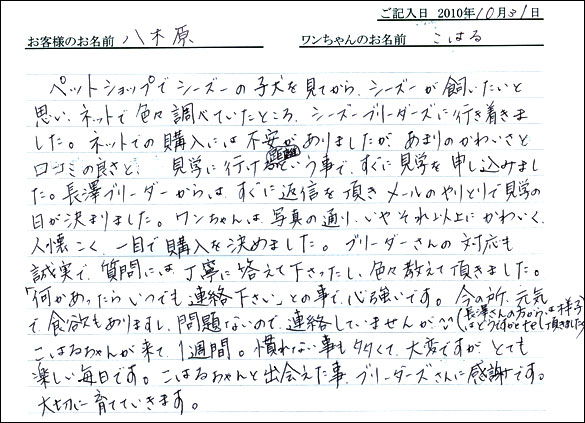 ご記入日 2010年10月31日
お客様のお名前 八木原 ワンちゃんのお名前 こはる
ペットショップでシーズーの子犬を見てから、シーズーが飼いたいと
思い、ネットで色々調べていたところ、シーズーブリーダーズに行き着きま
した。ネットでの購入には不安がありましたが、あまりのかわいさと
口コミの良さと、見学に行けるという事で、すぐに見学を申し込みまし
た。長澤ブリーダーからは、すぐに返信を頂きメールのやりとりで見学の
日が決まりました。ワンちゃんは、写真の通り、いやそれ以上にかわいく、
人懐こく、一目で購入を決めました。ブリーダーさんの対応も
誠実で、質問には丁寧に答えて下さったし、色々教えて頂きました。
「何かあったらいつでも連絡下さい」との事で、心強いです。今の所、元気
で食欲もありますし、問題ないので、連絡していませんが^^(長澤さんの方からは様子
はどうですかとTELして頂きました)
こはるちゃんが来て、1週間。慣れない事も多くて、大変ですが、とても
楽しい毎日です。こはるちゃんと出会えた事、ブリーダーズさんに感謝です。
大切に育てていきます。